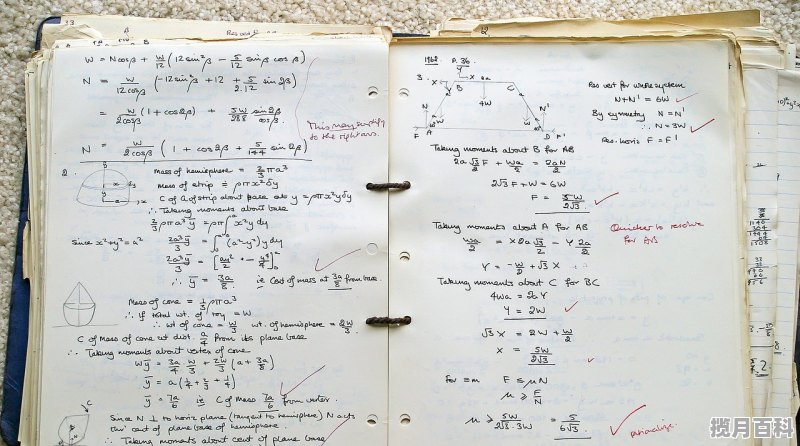 33
W = Ncosβ + W/12 (12 sin²β − 5/12 sinβ cosβ)
N = W/12cosβ (−12sin²β + 12 + 5/2.12 sin2β)
= W/2cosβ (1 + cos2β) + 5W/288 sin2β/cosβ.
This may simplify
to the right ans.
N = W/2cosβ (1 + cos2β + 5/144 sin2β)
2.
Mass of hemisphere = 2/3 πa³
Mass of strip ≑ ρπx²δy
C of G of strip about base as y = ρπx²yδy
∴ Taking moments about base
2/3 ρπa³ȳ = ∫ρπx²y dy
since x²+y² = a²
2a³ȳ/3 = ∫(a²−y²)y dy
2a³ȳ/3 = [ay²/2 − y⁴/4]
∴ ȳ = 3a/8 ie C of mass at 3a/8 from base.
Mass of cone = 1/3 ρπa³
∴ If total wt. of toy = W
∴ wt of cone = W/3 wt. of hemisphere = 2W/3
C of Mass of cone at dist. a/4 from its plane base
∴ Taking moments about vertex of cone
Wȳ = 3a/4 W/3 + 2W/3 (a + 3a/8)
ȳ = a(1/4 + 2/3 + 1/4)
ȳ = 7a/6 ie C of mass 7a/6 from vertex.
C
Since N ⊥ to horiz plane (tangent to hemisphere) N acts
thro' cent of plane base of hemisphere.
∴ Taking moments about cent of plane base
1968 P. 36
3.
X
2a
B
C
4W
Y
N
N'
W
W
F
A
D
F'
Res vert for whole system
N+N' = 6W
By symmetry N = N'
∴ N = 3W
Res. horiz F = F'
Taking moments about B for AB
2a√3/2 F + Wa/2 = 2aN/2
2√3F + W = 6W
F = 5W/2√3
Taking moments about A for AB
Wa/2 = X2a√3/2 − Y 2a/2
Quicker to resolve
for AB
Y = −W/2 + √3X
Taking moments about C for BC
4Wa = 2aY
Y = 2W
√3X = 2W + W/2
X = 5W/2√3
for =m F ≤ μN
μ ≥ F/N
μ ≥ 5W/2√3.3W = 5/6√3
rationalize.
揽月百科